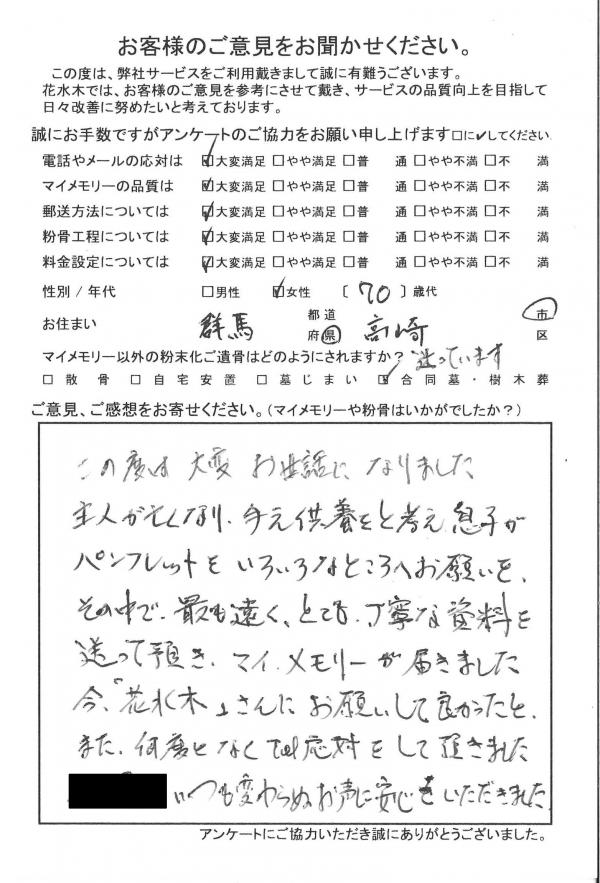 お客様のご意見をお聞かせください。
この度は、弊社サービスをご利用戴きまして誠に有難うございます。
花水木では、お客様のご意見を参考にさせて戴き、サービスの品質向上を目指して
日々改善に努めたいと考えております。
誠にお手数ですがアンケートのご協力をお願い申し上げます□に✔してください
電話やメールの応対は ☑大変満足 □やや満足 □普 通 □やや不満 □不 満
マイメモリーの品質は ☑大変満足 □やや満足 □普 通 □やや不満 □不 満
郵送方法については ☑大変満足 □やや満足 □普 通 □やや不満 □不 満
粉骨工程については ☑大変満足 □やや満足 □普 通 □やや不満 □不 満
料金設定については ☑大変満足 □やや満足 □普 通 □やや不満 □不 満
性別 / 年代 □男性 ☑女性 〔 70 〕歳代
お住まい 群馬 都道府県 高崎 市区
マイメモリー以外の粉末化ご遺骨はどのようにされますか? 迷っています
□散骨 □自宅安置 □墓じまい ☑合同墓・樹木葬
ご意見、ご感想をお寄せください。(マイメモリーや粉骨はいかがでしたか?)
この度は 大変 お世話に なりました
主人が亡くなり、手元供養をと考え 息子が
パンフレットを いろいろなところへお願いを、
その中で、最も遠く、とても、丁寧な資料を
送って頂き、マイ、メモリーが届きました
今、「花水木」さんに お願いして良かったと、
また、何度となくtel応対をして頂きました
いつも変わらぬお声に安心をいただきました
アンケートにご協力いただき誠にありがとうございました。